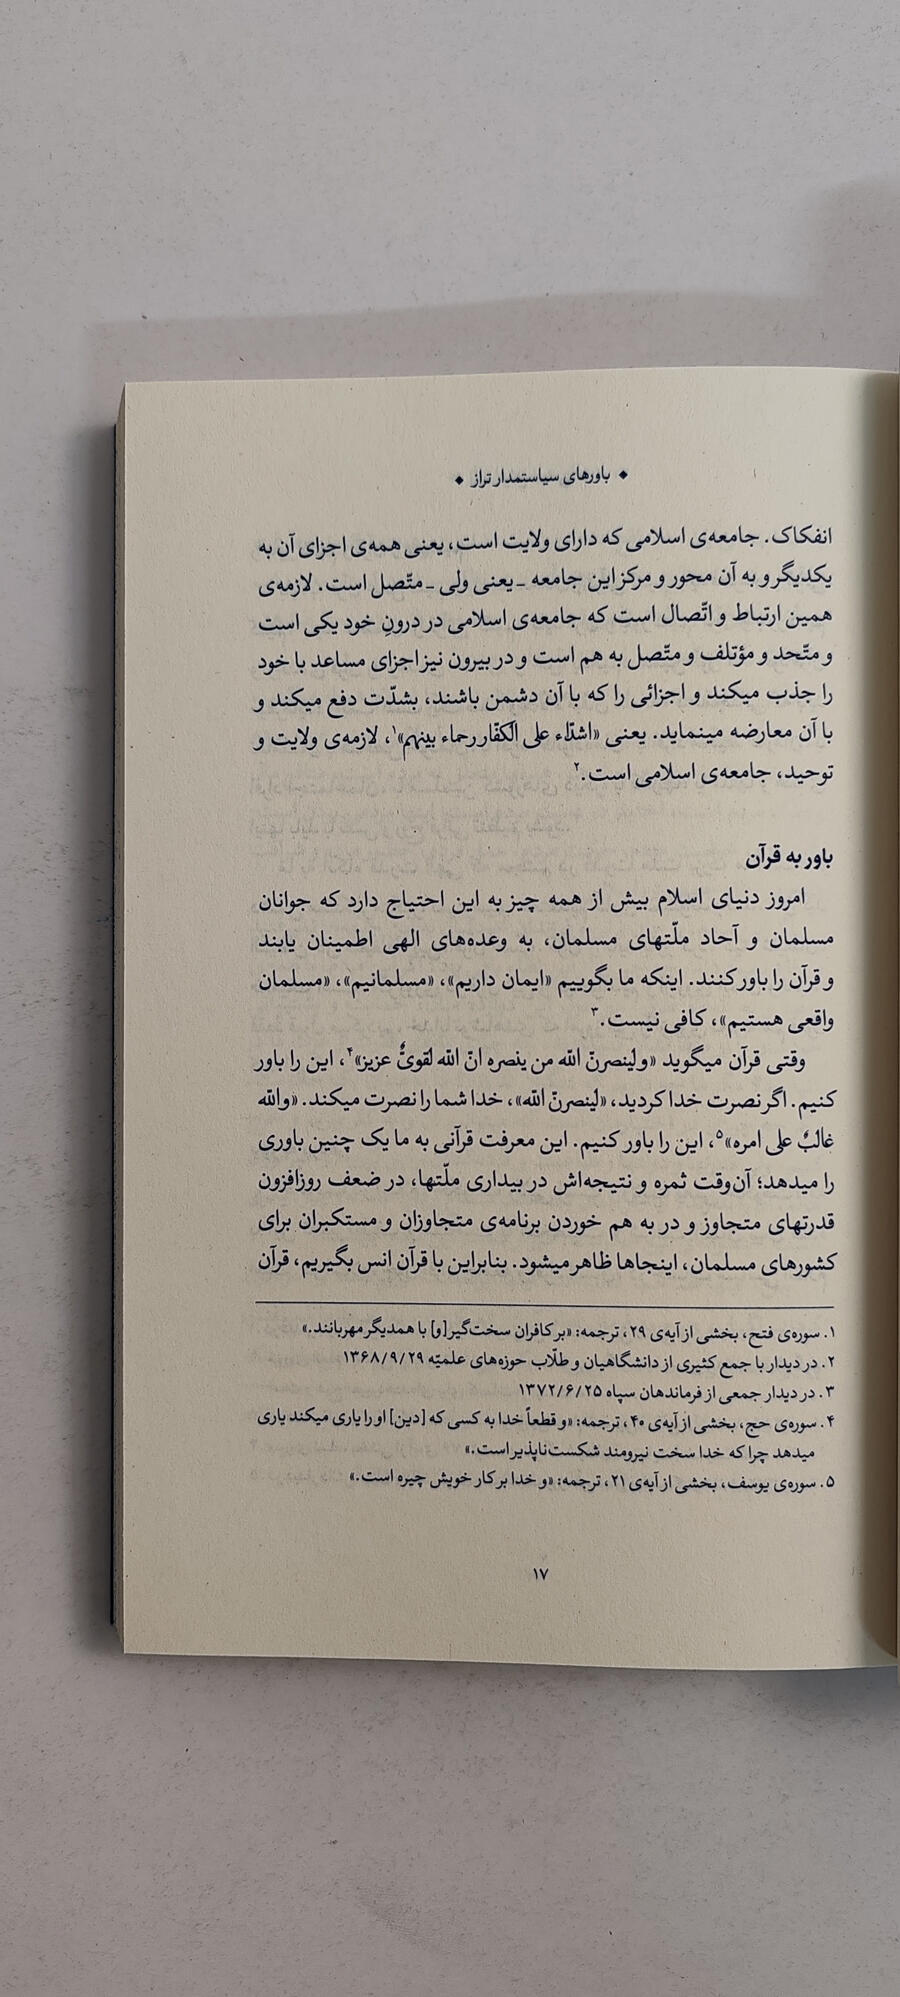 ◆ باورهای سیاستمدار تراز ◆
انفکاک. جامعه‌ی اسلامی که دارای ولایت است، یعنی همه‌ی اجزای آن به
یکدیگر و به آن محور و مرکز این جامعه ـ یعنی ولی ـ متّصل است. لازمه‌ی
همین ارتباط و اتّصال است که جامعه‌ی اسلامی در درونِ خود یکی است
و متّحد و مؤتلف و متّصل به هم است و در بیرون نیز اجزای مساعد با خود
را جذب میکند و اجزائی را که با آن دشمن باشند، بشدّت دفع میکند و
با آن معارضه مینماید. یعنی «اشدّاء علی الکفّار رحماء بینهم»۱، لازمه‌ی ولایت و
توحید، جامعه‌ی اسلامی است.۲
باور به قرآن
امروز دنیای اسلام بیش از همه چیز به این احتیاج دارد که جوانان
مسلمان و آحاد ملّتهای مسلمان، به وعده‌های الهی اطمینان یابند
و قرآن را باور کنند. اینکه ما بگوییم «ایمان داریم»، «مسلمانیم»، «مسلمان
واقعی هستیم»، کافی نیست.۳
وقتی قرآن میگوید «ولینصرنّ الله من ینصره انّ الله لقویٌّ عزیز»۴، این را باور
کنیم. اگر نصرت خدا کردید، «لینصرنّ الله»، خدا شما را نصرت میکند. «والله
غالبٌ علی امره»۵، این را باور کنیم. این معرفت قرآنی به ما یک چنین باوری
را میدهد؛ آن‌وقت ثمره و نتیجه‌اش در بیداری ملّتها، در ضعف روزافزون
قدرتهای متجاوز و در به هم خوردن برنامه‌ی متجاوزان و مستکبران برای
کشورهای مسلمان، اینجاها ظاهر میشود. بنابراین با قرآن انس بگیریم، قرآن
۱. سوره‌ی فتح، بخشی از آیه‌ی ۲۹، ترجمه: «بر کافران سخت‌گیر [و] با همدیگر مهربانند.»
۲. در دیدار با جمع کثیری از دانشگاهیان و طلّاب حوزه‌های علمیّه ۱۳۶۸/۹/۲۹
۳. در دیدار جمعی از فرماندهان سپاه ۱۳۷۲/۶/۲۵
۴. سوره‌ی حج، بخشی از آیه‌ی ۴۰، ترجمه: «و قطعاً خدا به کسی که [دین] او را یاری میکند یاری
میدهد چرا که خدا سخت نیرومند شکست‌ناپذیر است.»
۵. سوره‌ی یوسف، بخشی از آیه‌ی ۲۱، ترجمه: «و خدا بر کار خویش چیره است.»
۱۷